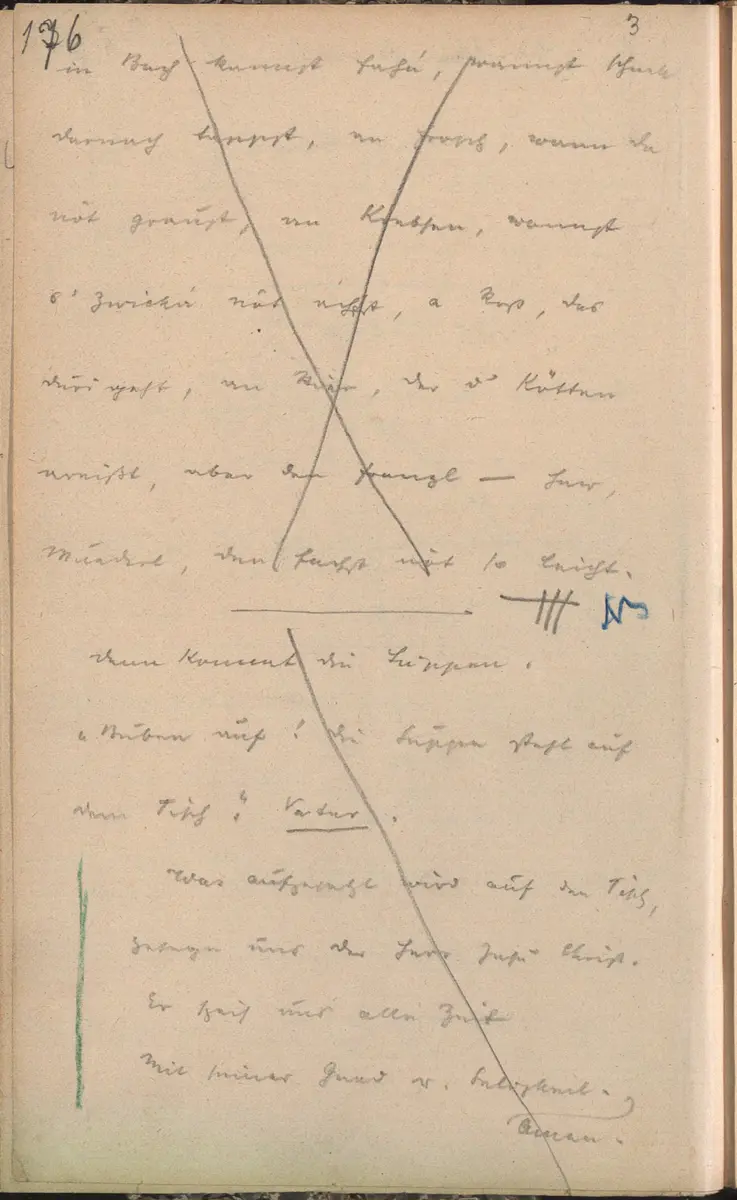 176
3
in Bach kannst fahn, wannst schnell
darnach tappst, an Frosch, wann da
nöt graust, an Krebsen, wannst
d' Zwicka nöt , a Roß, das
durigeht, an , der d' Kötten
areißt, aber den Franzl — Herr,
den fachst nöt so leicht.
dann kommt die Suppen.
"Buben auf! die Suppe steht auf
dem Tisch." Vater.
Was aufgesetzt wird auf den Tisch,
gesegn uns der Herr Jesu Christ.
Er speis uns alle Zeit
Mit seiner Gnad u. Seligkeit.
Amen.